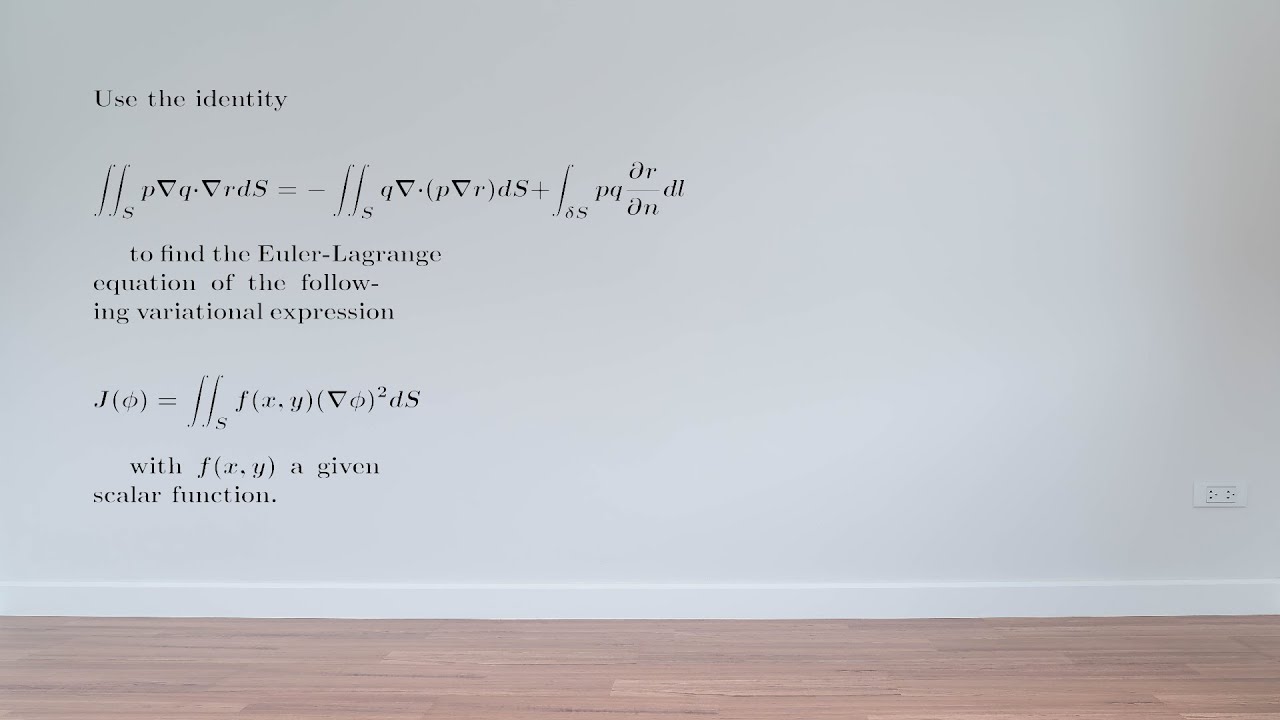 Use the identity
∬_S p∇q·∇rdS = − ∬_S q∇·(p∇r)dS+∫_{δS} pq ∂r/∂n dl
to find the Euler-Lagrange
equation of the follow-
ing variational expression
J(ϕ) = ∬_S f(x, y)(∇ϕ)²dS
with f(x, y) a given
scalar function.